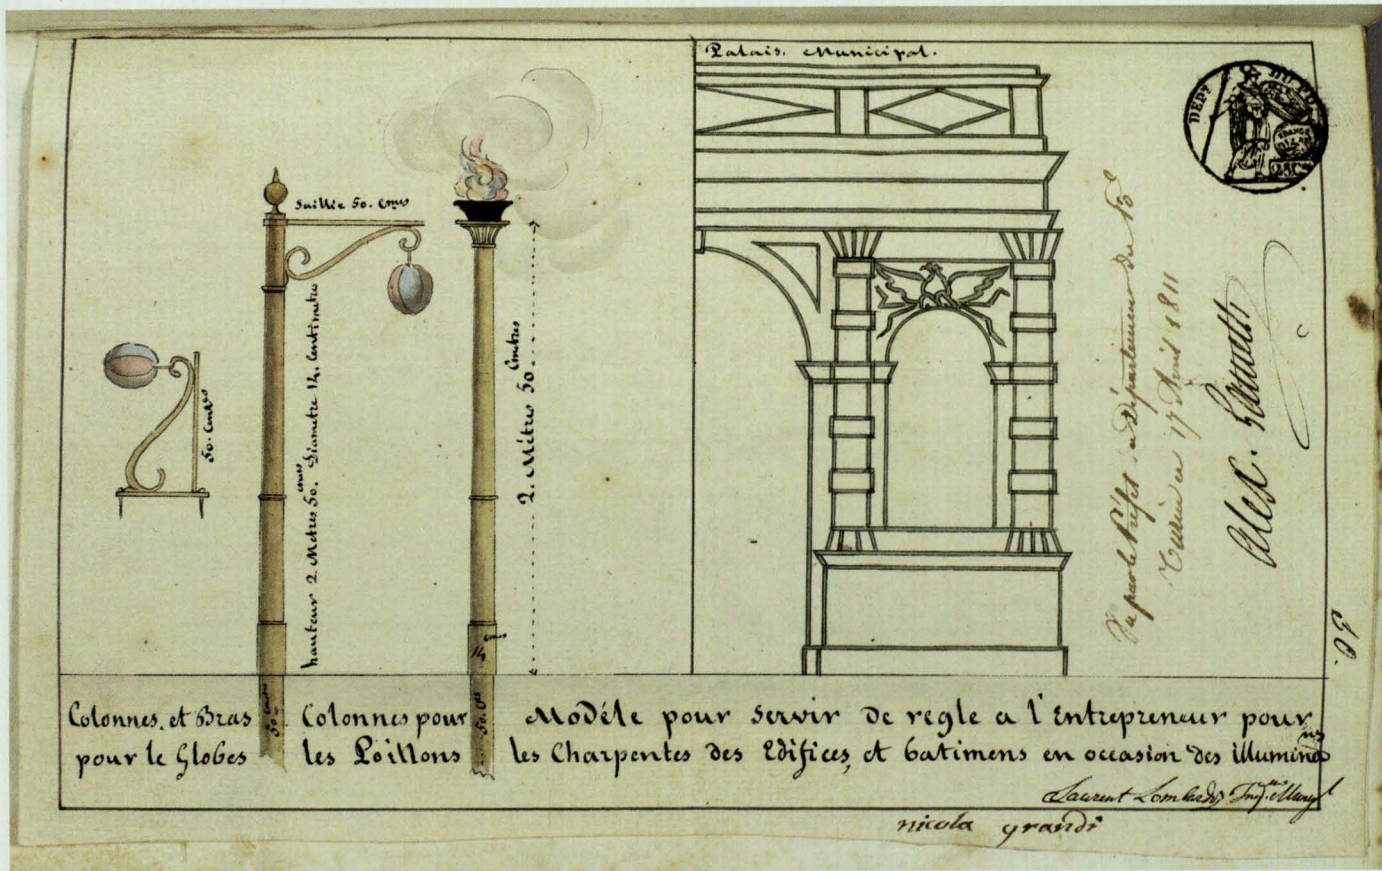 Palais. Municipal.
Saillie 50. Cmes
50. Cmes
hauteur 2. Metres 50. cmes Diametre 14. Centimetre
2. Métres 50 Cmtres
14 cmes
50 cmes
50. Cs
DEPT DU PO
Vu par le Préfet du Département du Pô
Turin ce 17 Avril 1811
Alex.
30.
Colonnes, et Bras
pour le Globes
Colonnes pour
les Poillons
Modéle pour Servir de regle a l'Entrepreneur pour
les Charpentes des Edifices, et batimens en occasion des illuminons
Laurent Lombardi Ingr Munipl
nicola grandi